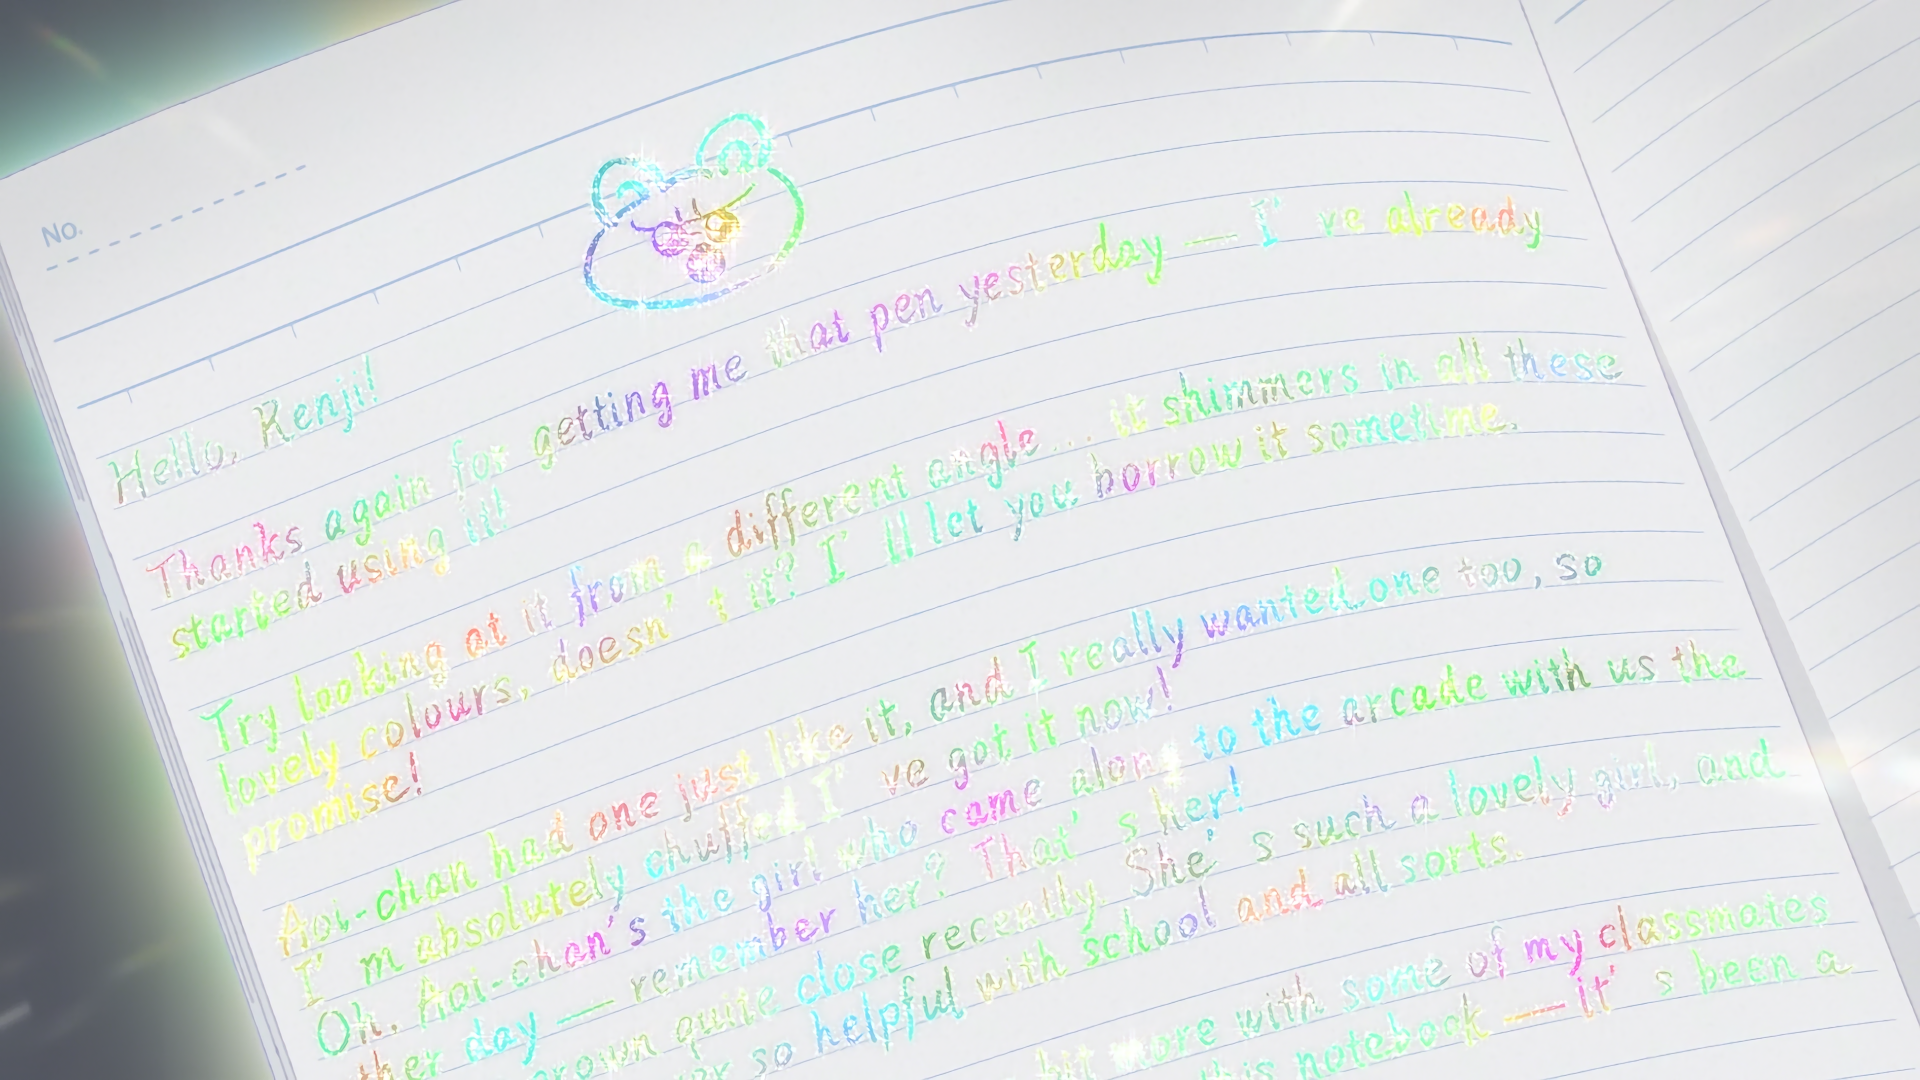 No.
Hello, Kenji!
Thanks again for getting me that pen yesterday — I've already
started using it!
Try looking at it from a different angle... it shimmers in all these
lovely colours, doesn't it? I'll let you borrow it sometime.
promise!
Aoi-chan had one just like it, and I really wanted one too, so
I'm absolutely chuffed I've got it now!
Oh, Aoi-chan's the girl who came along to the arcade with us the
ther day — remember her? That's her!
rown quite close recently. She's such a lovely girl, and
so helpful with school and all sorts.
bit more with some of my classmates
this notebook — it's been a